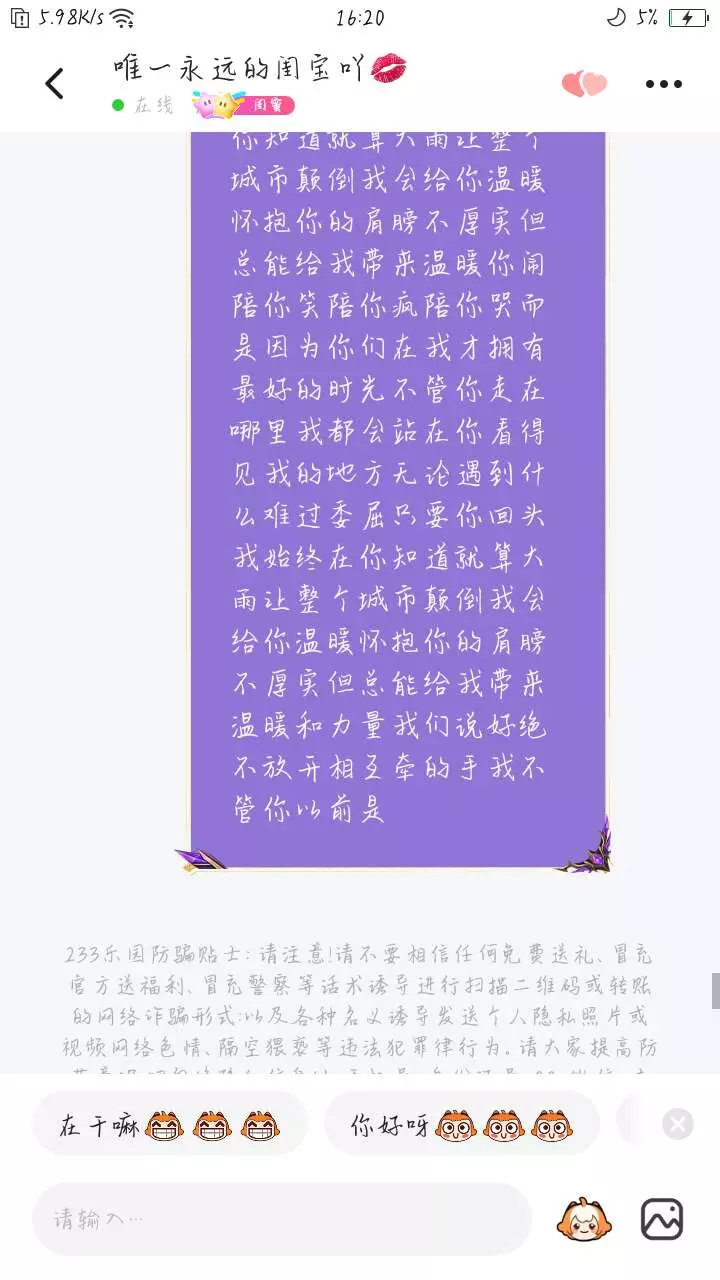 5.98K/s
16:20
5%
唯一永远的闺宝吖
在线
闺蜜
你知道就算大雨让整个
城市颠倒我会给你温暖
怀抱你的肩膀不厚实但
总能给我带来温暖你闹
陪你笑陪你疯陪你哭而
是因为你们在我才拥有
最好的时光不管你走在
哪里我都会站在你看得
见我的地方无论遇到什
么难过委屈只要你回头
我始终在你知道就算大
雨让整个城市颠倒我会
给你温暖怀抱你的肩膀
不厚实但总能给我带来
温暖和力量我们说好绝
不放开相互牵的手我不
管你以前是
233乐园防骗贴士:请注意!请不要相信任何免费送礼、冒充
官方送福利、冒充警察等话术诱导进行扫描二维码或转账
的网络诈骗形式;以及各种名义诱导发送个人隐私照片或
视频网络色情、隔空猥亵等违法犯罪律行为。请大家提高防
在干嘛
你好呀
请输入…